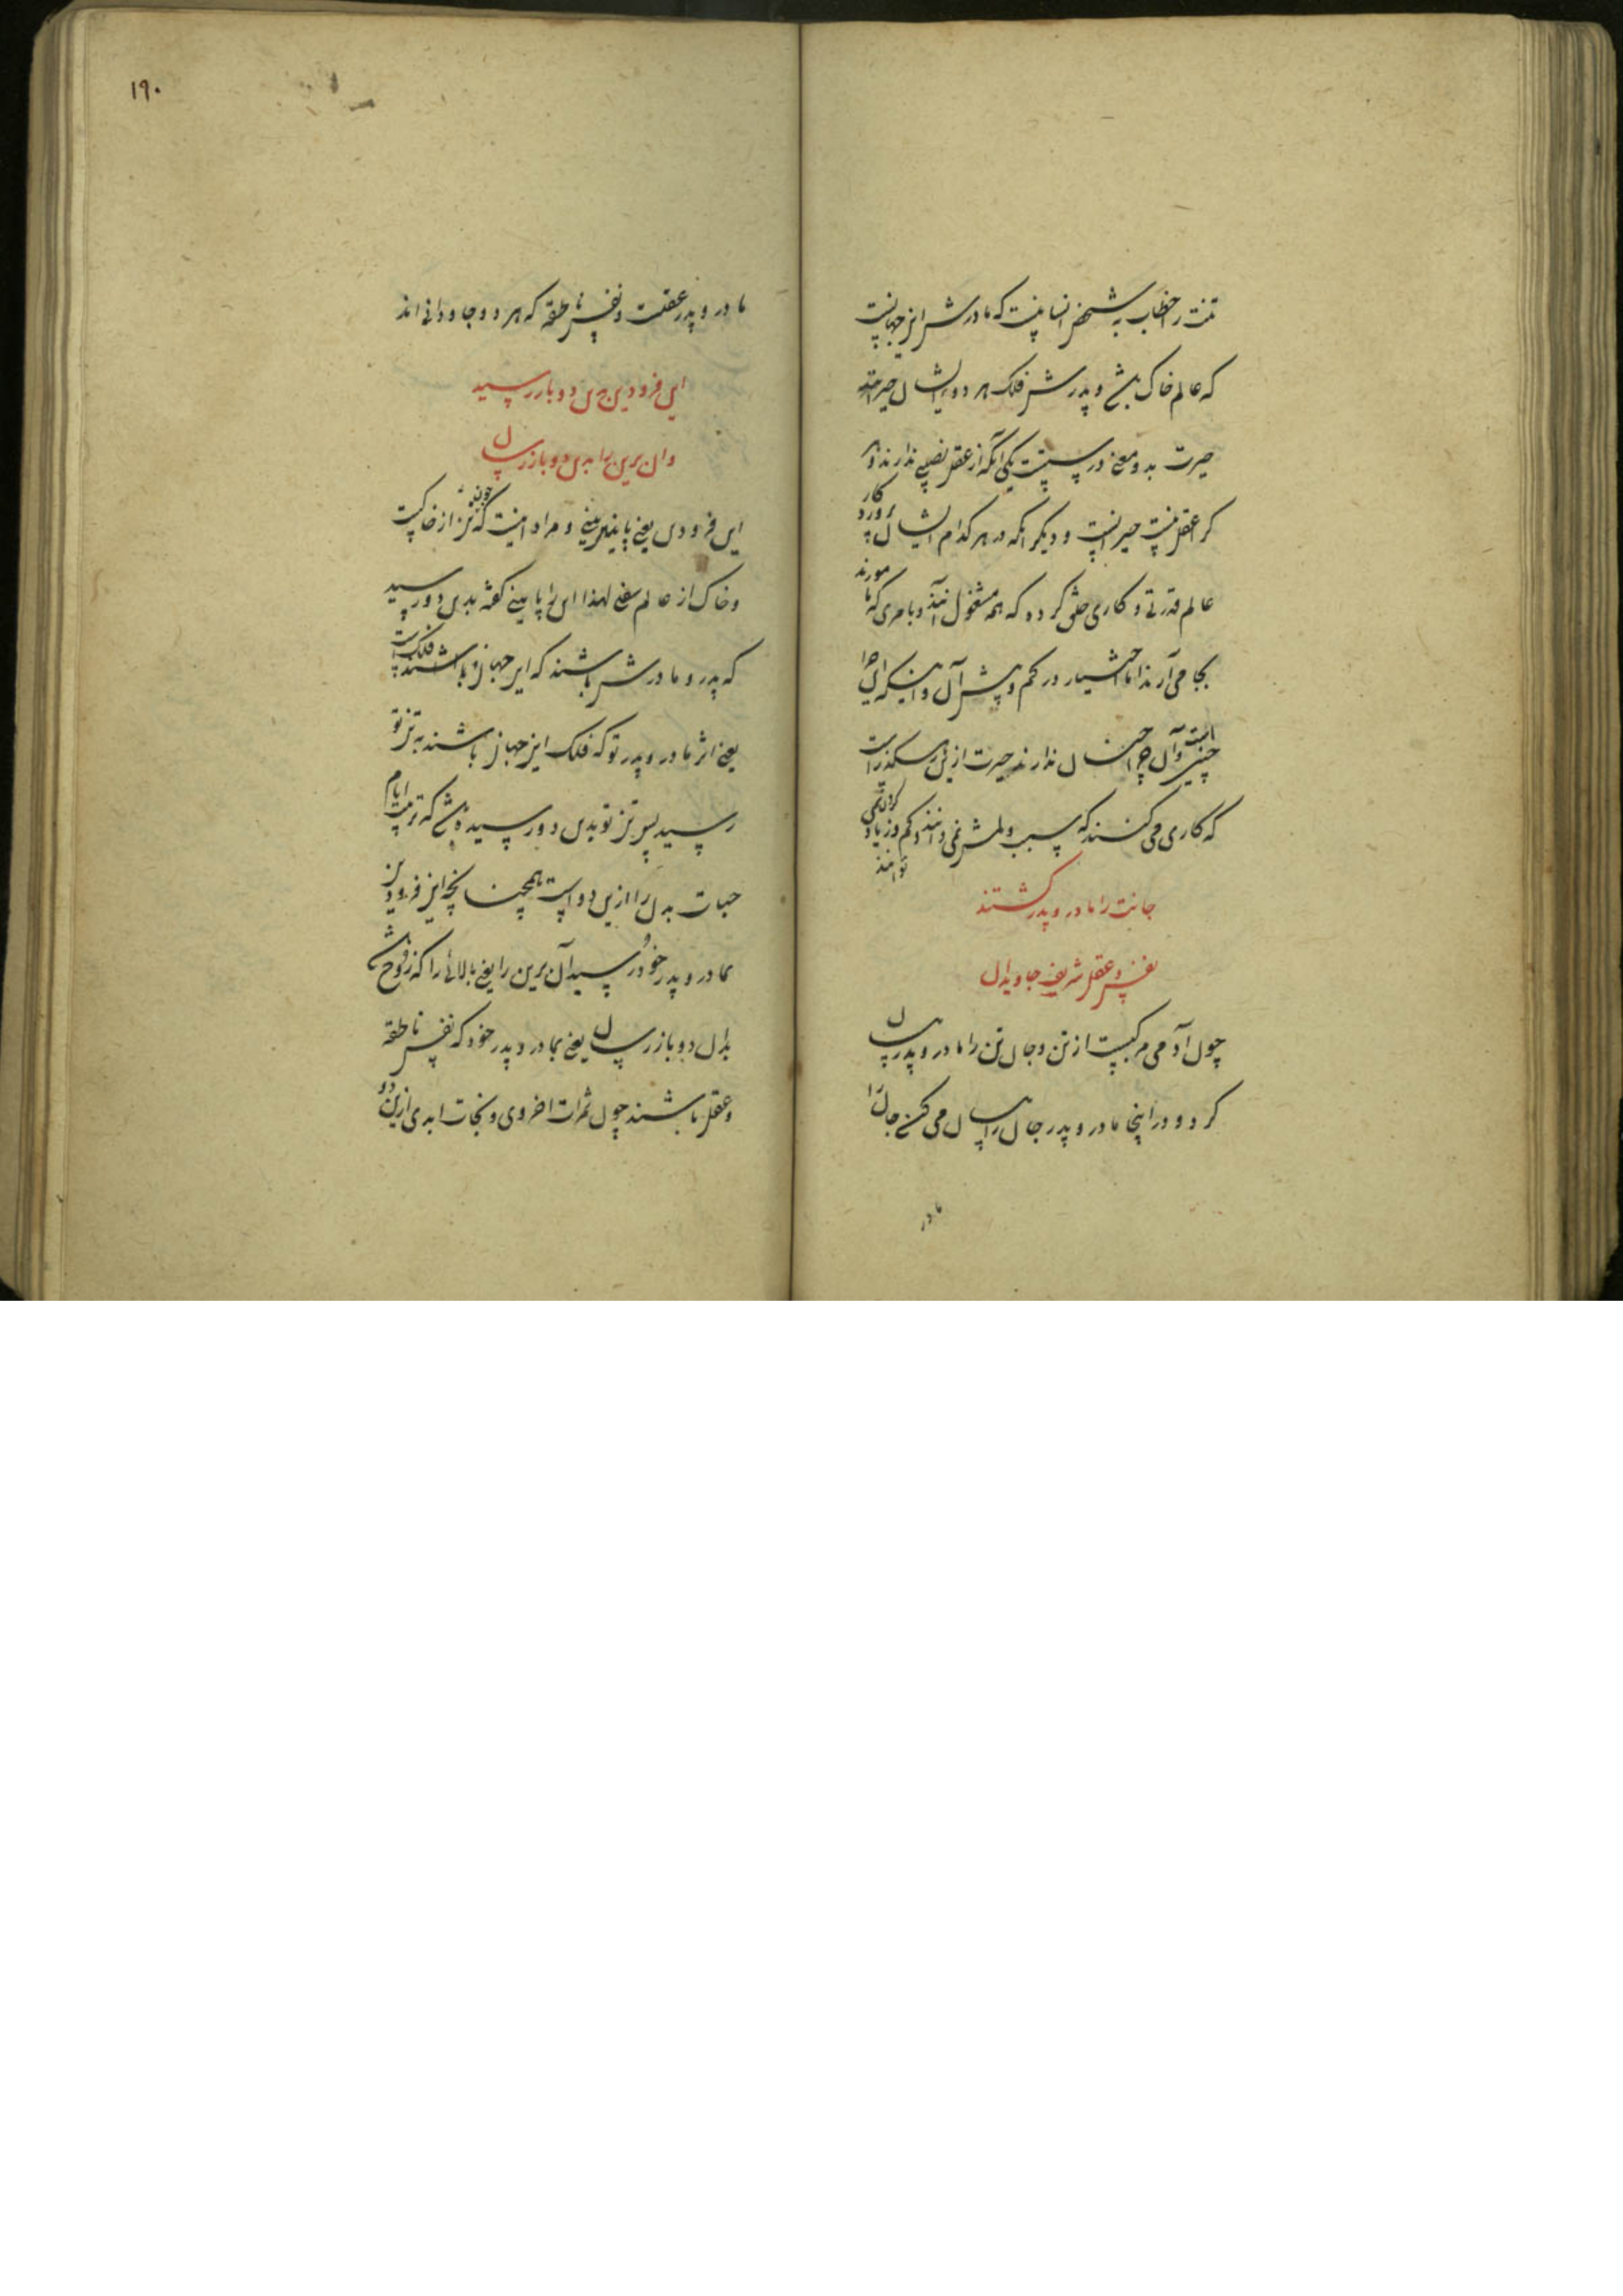 تنت را خطاب به شخص انسانیست که مادرش این جهانست
که عالم خاک باشد و پدرش فلک هر دو ایشان حیرانند
حیرت بدو معنی درست است یکی آنکه از عقل نصیبی ندارند و هر
که را عقل نیست حیرانست و دیگر آنکه در هر کدام ایشان
عالم قدرتی و کاری خلق کرده که همه مشغول آنند و بامری که مامورند
بجا می‌آرند اما اختیار در کم و بیش آن و اینکه این چرا
چنین است و آن چرا چنان ندارند حیرت ازین
که کاری می‌کنند که سبب و لمش نمی‌دانند و کم و زیاد کردن نمی
توانند
جانت را مادر و پدر گشتند
نفس و عقل شریف جاویدان
چون آدمی مرکبست از تن و جان تن را مادر و پدر بیان
کرد و در اینجا مادر و پدر جان را بیان می‌کند جان را
مادر
۱۹۰
مادر و پدر عقلست و نفس ناطقه که هر دو جاودانی‌اند
این فرودین بدین دو باز رسید
وان برین را بدان دو باز رسان
این فرودین یعنی پایینی و مراد اینست که چون تن از خاکست
و خاک از عالم سفلی لهذا این را پایینی گفته بدین دو رسید
که پدر و مادرش باشند که این جهان و فلک باشند
یعنی اثر مادر و پدر تو که فلک این جهان باشند به تن تو
رسید پس تن تو بدین دو رسیده باشد که تربیت ایام
حیات بدن را ازین دو است همچنانچه این فرودین
بمادر و پدر خود رسید آن برین را یعنی بالائی را که روح باشد
بدان دو باز رسان یعنی بمادر و پدر خود که نفس ناطقه
و عقل باشند چون ثمرات اخروی و نجات ابدی ازین دو